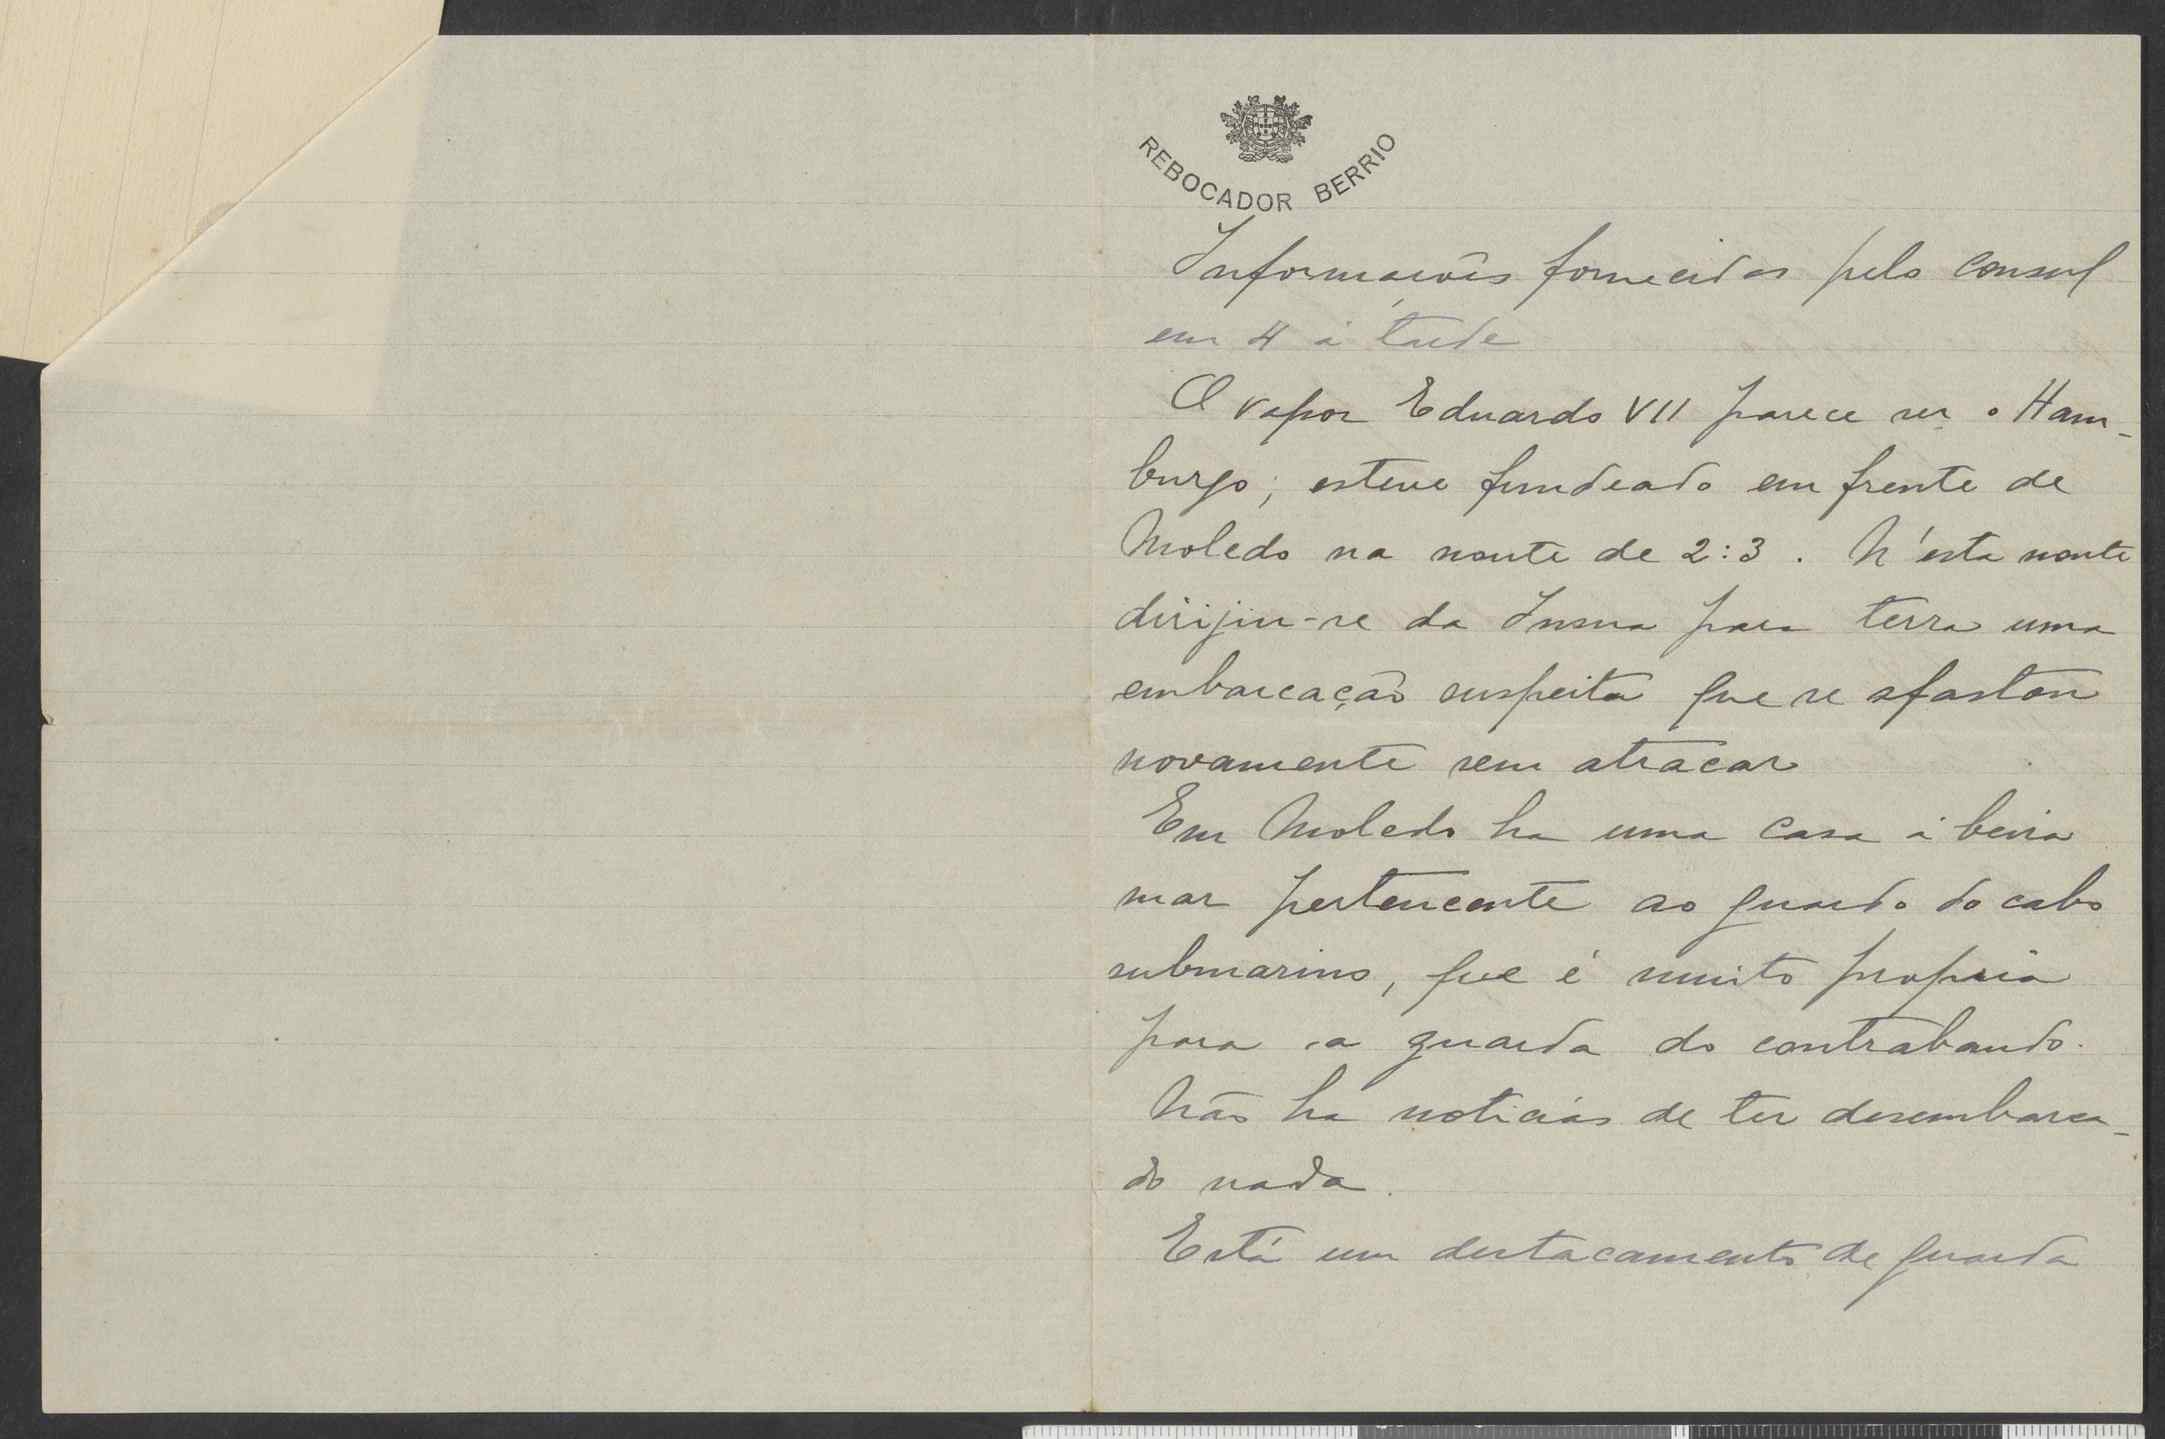 REBOCADOR BERRIO
Informações fornecidas pelo consul
em 4 á tarde
O vapor Eduardo VII parece ser o Ham-
burgo; esteve fundeado em frente de
Moledo na noute de 2:3. N'esta noute
dirijiu-se da Insua para terra uma
embarcação suspeita que se afastou
novamente sem atracar
Em Moledo ha uma casa á beira
mar pertencente ao guarda do cabo
submarino, que é muito propria
para a guarda do contrabando.
Não ha noticias de ter desembarca-
do nada.
Está um destacamento de guarda